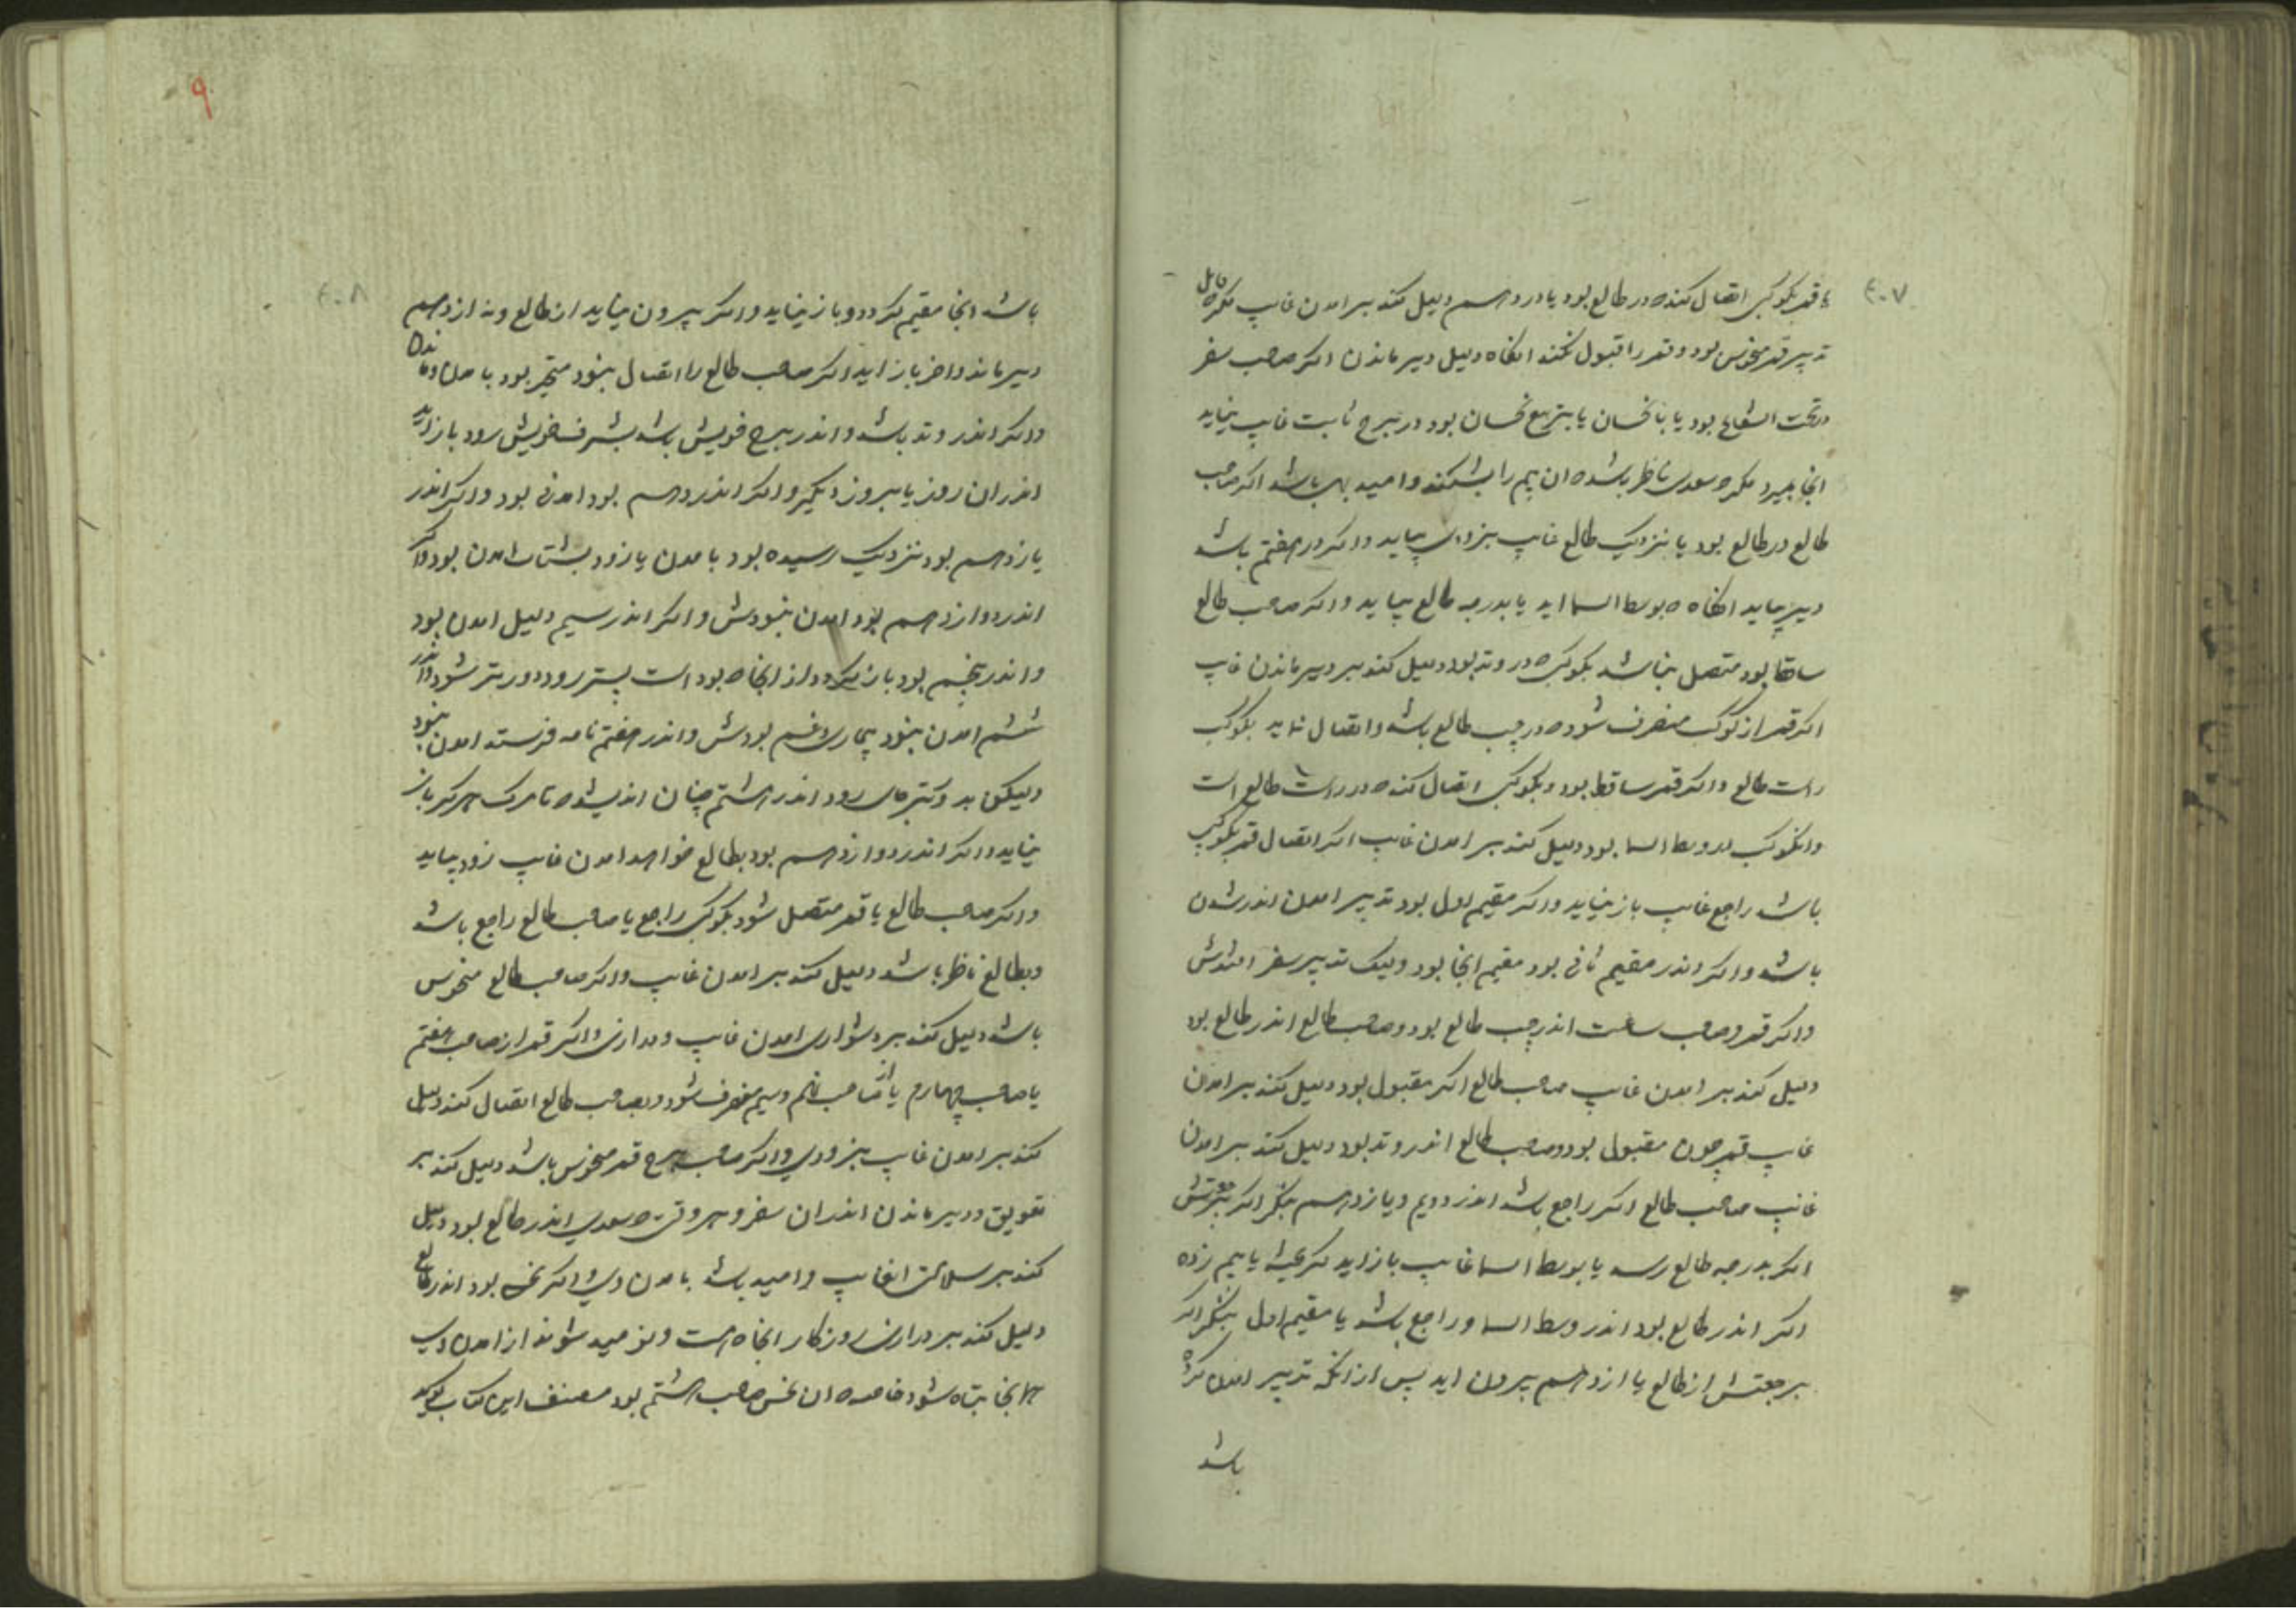 ۲۰۷
یا قمر بکوکبی اتصال کند که در طالع بود یا در دهم دلیل کند بر امدن غایب مگر که قابل
تدبیر قمر منحوس بود و قمر را قبول نکند انگاه دلیل دیر ماندن اگر صاحب سفر
در تحت الشعاع بود یا با نحسان یا بتربیع نحسان بود در برج ثابت غایب نیاید
انجا بمیرد مگر که سعدی ناظر باشد که ان بیم را بشکند و امید بهی باشد اگر صاحب
طالع در طالع بود یا نزدیک طالع غایب بزودی بیاید و اگر در هفتم باشد
دیر بیاید انگاه که بوسط السما اید یا بدرجه طالع بیاید و اگر صاحب طالع
ساقط بود متصل نباشد بکوکبی که در وتد بود دلیل کند بر دیر ماندن غایب
اگر قمر از کوکب منصرف شود که در چپ طالع باشد و اتصال نماید بکوکب
راست طالع و اگر قمر ساقط بود و بکوکبی اتصال کند که در راست طالع است
و انکوکب در وسط السما بود دلیل کند بر امدن غایب اگر اتصال قمر بکوکبی
باشد راجع غایب باز نیاید و اگر مقیم اول بود تدبیر امدن اندر شدن
باشد و اگر اندر مقیم ثانی بود مقیم انجا بود ولیک تدبیر سفر افتدش
و اگر قمر و صاحب ساعت اندر چپ طالع بود و صاحب طالع اندر طالع بود
دلیل کند بر امدن غایب صاحب طالع اگر مقبول بود دلیل کند بر امدن
غایب قمر چون مقبول بود و صاحب طالع اندر وتد بود دلیل کند بر امدن
غایب صاحب طالع اگر راجع باشد اندر دویم و یازدهم بنگر اگر برجعتش
اگر بدرجه طالع رسد یا بوسط السما غایب باز اید یا بیم زده
اگر اندر طالع بود اندر وسط السما و راجع باشد یا مقیم اول بنگر اگر
برجعتش از طالع یا از دهم بیرون اید پس از انکه تدبیر امدن کرده
باشد
۹
۲۰۸
باشد انجا مقیم گردد و باز نیاید و اگر بیرون نیاید از طالع و نه از دهم
دیر ماند و اخر باز اید اگر صاحب طالع را اتصال نبود متحیر بود بامدن و ماندن
و اگر اندر وتد باشد و اندر برج خویش باشد بشرف خویش رود باز اید
اندر ان روز یا بروز دیگر و اگر اندر دهم بود امدنی بود و اگر اندر
یازدهم بود نزدیک رسیده بود بامدن یا زود بشتاب امدن بود و اگر
اندر دوازدهم بود امدن نبودش و اگر اندر سیم دلیل امدن بود
و اندر پنجم بود باز گردد از انجا که بود است پستر رود دورتر شود و اندر
ششم امدن نبود بیماری و غم بودش و اندر هفتم نامه فرستد امدن نبود
ولیکن بد رود اندر هشتم چنان اندیشد که تا مرگ هرگز باز
نیاید و اگر اندر دوازدهم بود بطالع خواهد امدن غایب زود بیاید
و اگر صاحب طالع یا قمر متصل شود بکوکبی راجع یا صاحب طالع راجع باشد
و بطالع ناظر باشد دلیل کند بر امدن غایب و اگر صاحب طالع منحوس
باشد دلیل کند بر دشواری امدن غایب و درازی و اگر قمر از صاحب هفتم
یا صاحب چهارم یا از صاحب نهم و سیم منصرف شود و بصاحب طالع اتصال کند دلیل
کند بر امدن غایب بزودی و اگر صاحب برج قمر منحوس باشد دلیل کند بر
تعویق و دیر ماندن اندر ان سفر و هر وقتی که سعدی اندر طالع بود دلیل
کند بر سلامتی انغایب و امید باشد بامدن وی و اگر نحس بود اندر طالع
دلیل کند بر درازی روزگار انجا که هست و نومید شوند از امدن وی
انجا تباه شود خاصه که ان نحس صاحب هشتم بود مصنف این کتاب گوید